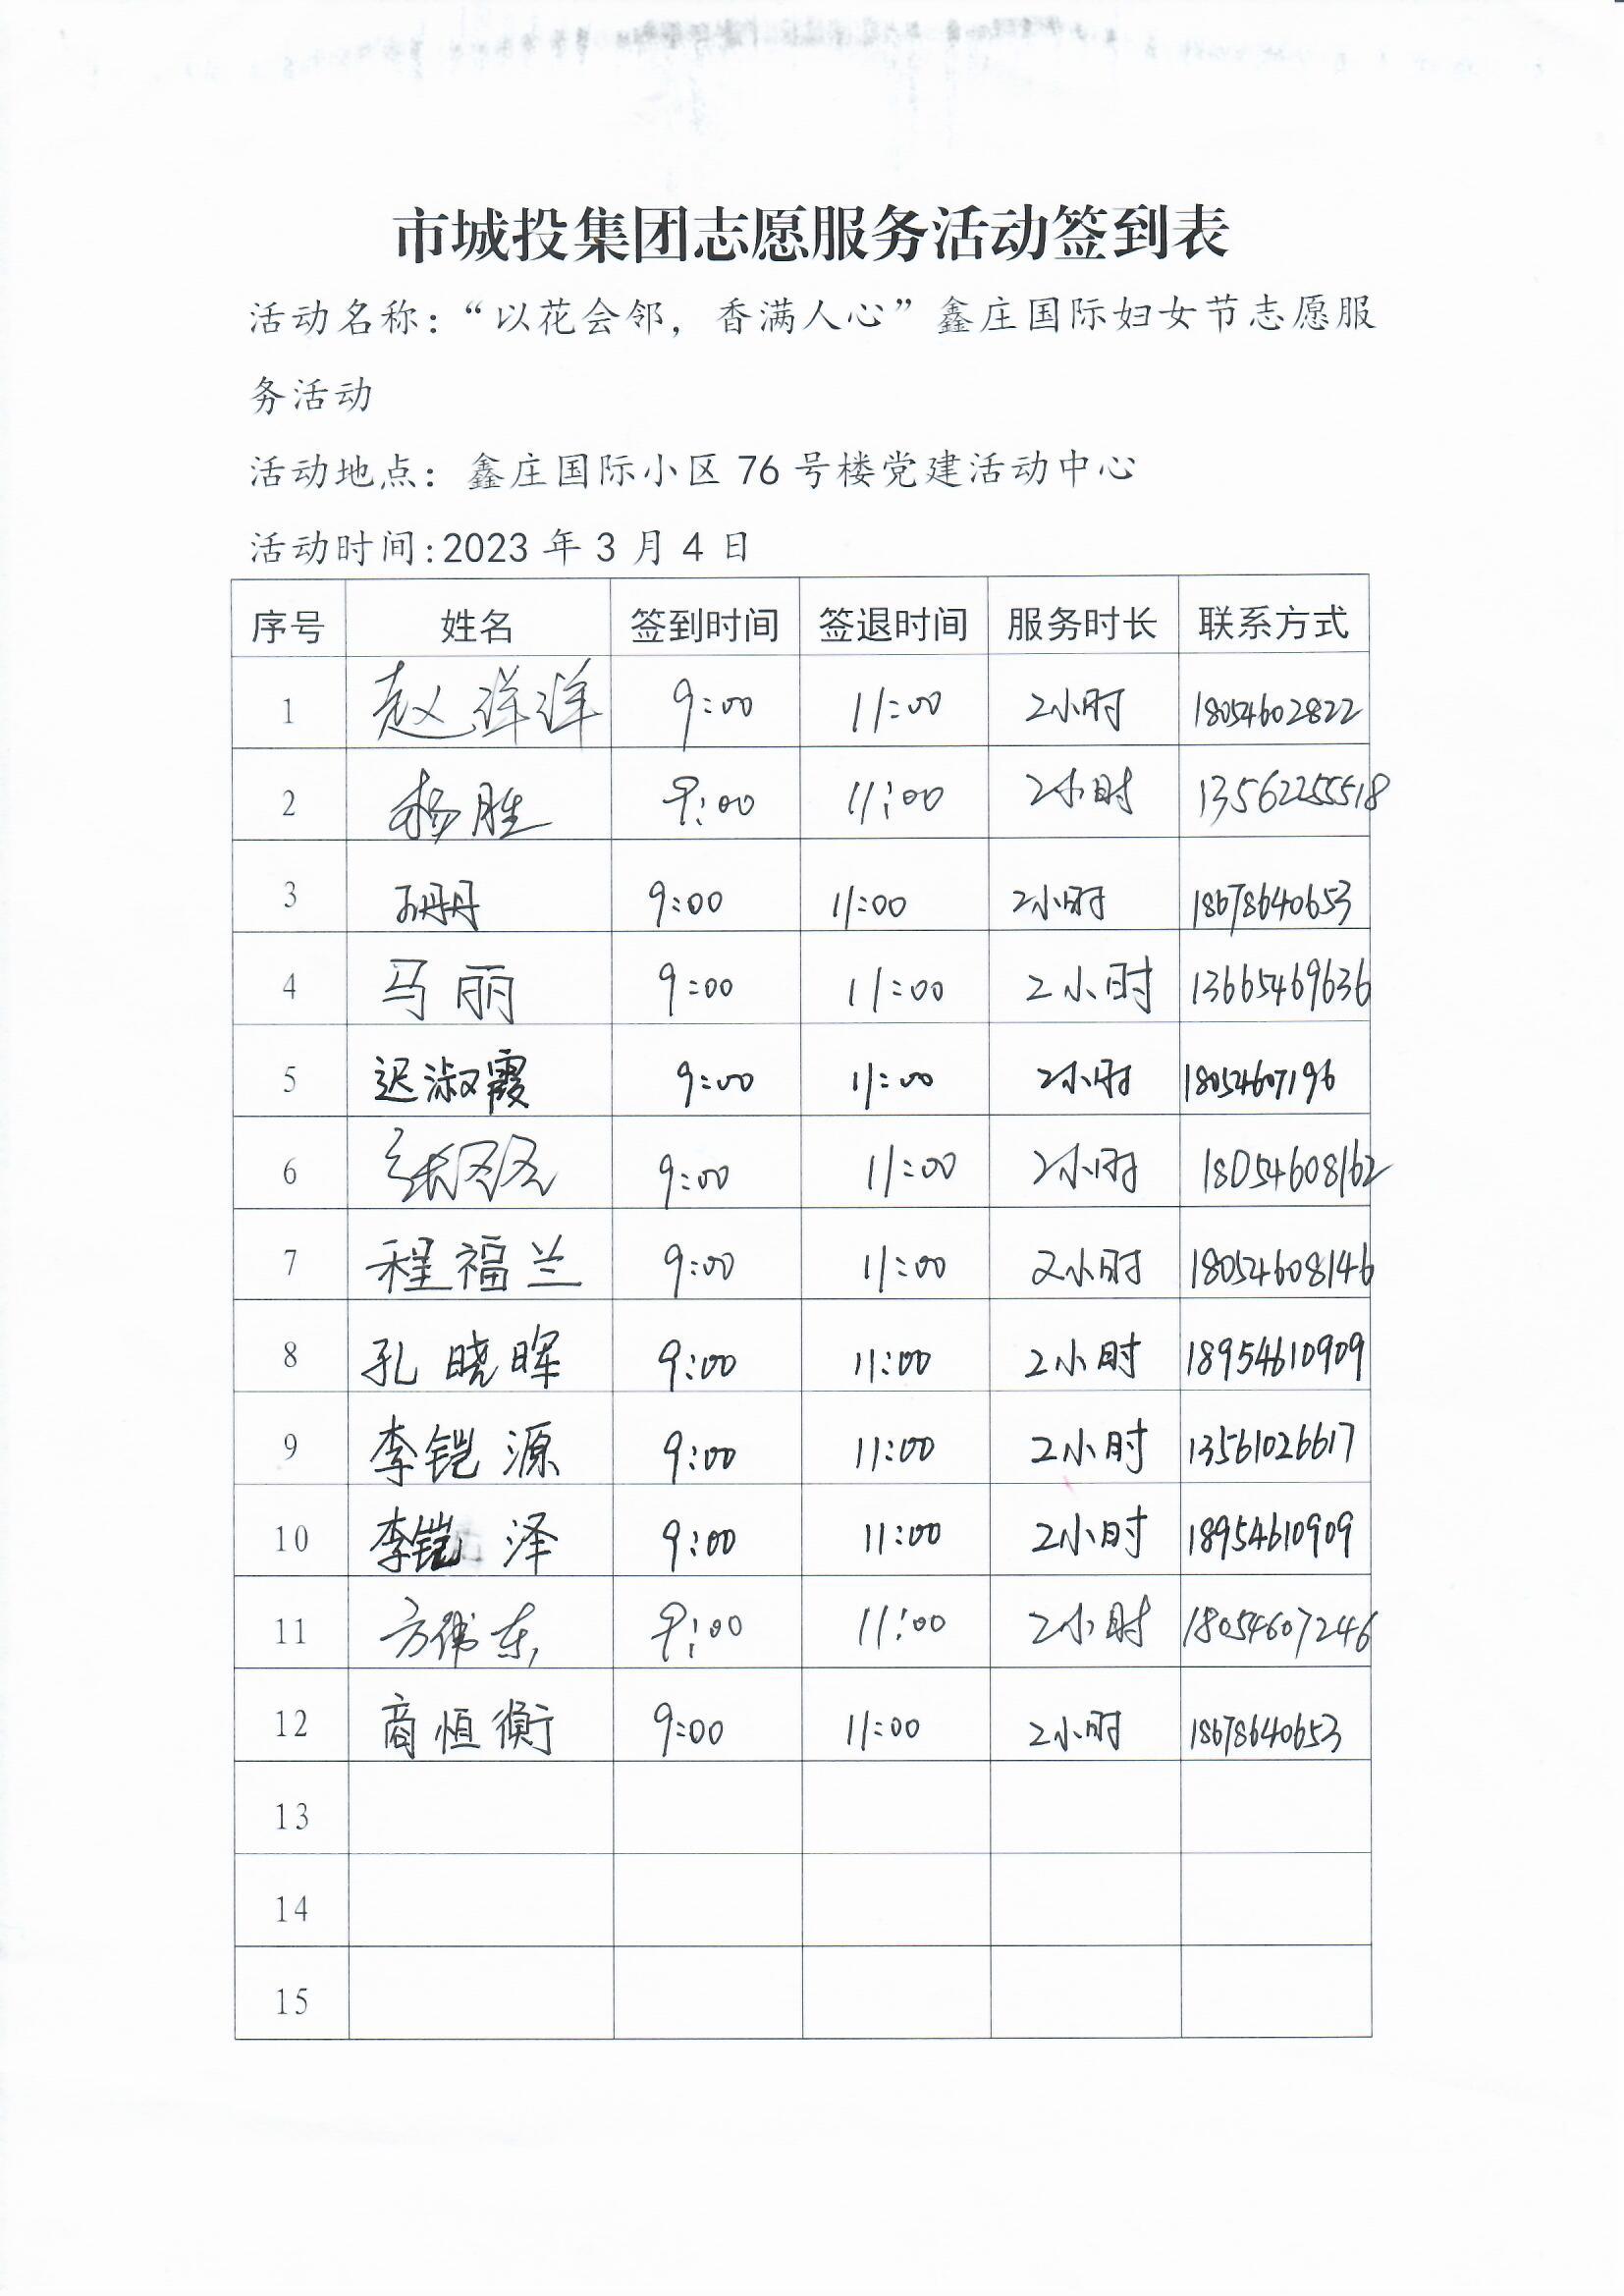 市城投集团志愿服务活动签到表
活动名称：“以花会邻，香满人心”鑫庄国际妇女节志愿服
务活动
活动地点：鑫庄国际小区 76 号楼党建活动中心
活动时间:2023 年 3 月 4 日
序号 姓名 签到时间 签退时间 服务时长 联系方式
1 赵洋洋 9:00 11:00 2小时 18054602822
2 杨胜 9:00 11:00 2小时 13562255518
3 孙丹丹 9:00 11:00 2小时 18678640653
4 马丽 9:00 11:00 2小时 13665469636
5 迟淑霞 9:00 11:00 2小时 18054607196
6 9:00 11:00 2小时 18054608162
7 程福兰 9:00 11:00 2小时 18054608146
8 孔晓晖 9:00 11:00 2小时 18954610909
9 李铠源 9:00 11:00 2小时 13561026617
10 李铠泽 9:00 11:00 2小时 18954610909
11 方伟东 9:00 11:00 2小时 18054607246
12 商恒衡 9:00 11:00 2小时 18678640653
13
14
15